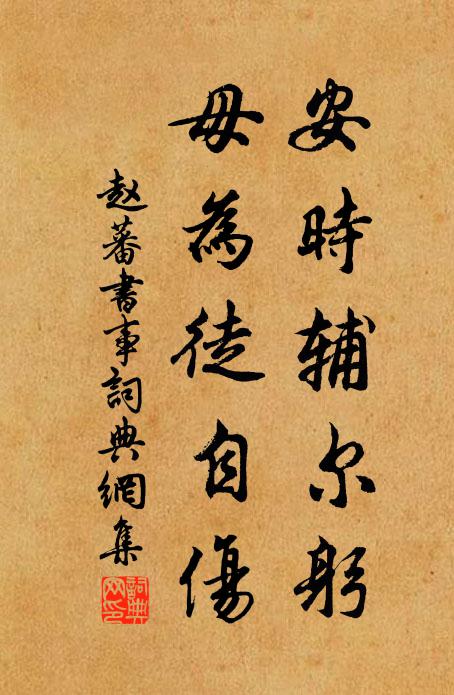 安時辅尔躬
毋為徒自傷
赵蕃書事詞典網集
詞典網印